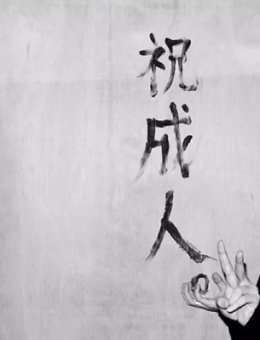 祝成人